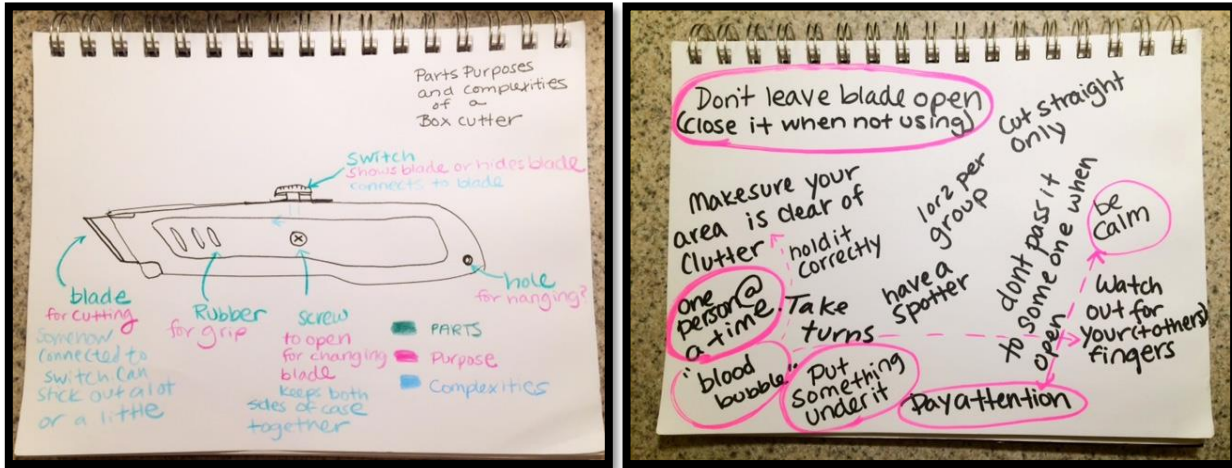 Parts Purposes
and complexities
of a
Box cutter
switch
shows blade or hides blade
connects to blade
blade
for cutting
Somehow
connected to
switch can
stick out a lot
or a little
Rubber
for grip
screw
to open
for changing
blade
keeps both
sides of case
together
hole
for hanging?
PARTS
Purpose
Complexities
Don't leave blade open
(close it when not using)
Cut straight
only
Make sure your
area is clear of
clutter
hold it
correctly
1 or 2 per
group
dont pass it
to some one when
open
be
calm
one
person @
a time.
Take
turns
have a
spotter
Watch
out for
your (+ others)
fingers
"blood
bubble"
Put
something
under it
Pay attention